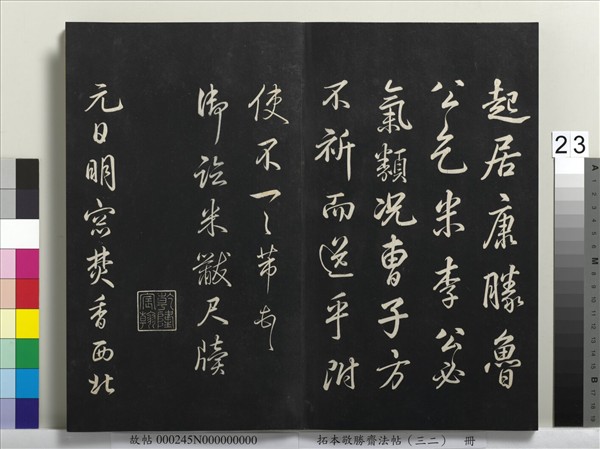 起居康勝魯
公乞米李公必
氣類況曹子方
不祈而送乎附
使不一一芾頓首
御臨米黻尺牘
乾隆宸翰
元日明窓焚香西北
23
A
B
故帖 000245N000000000
拓本敬勝齋法帖（三二） 冊